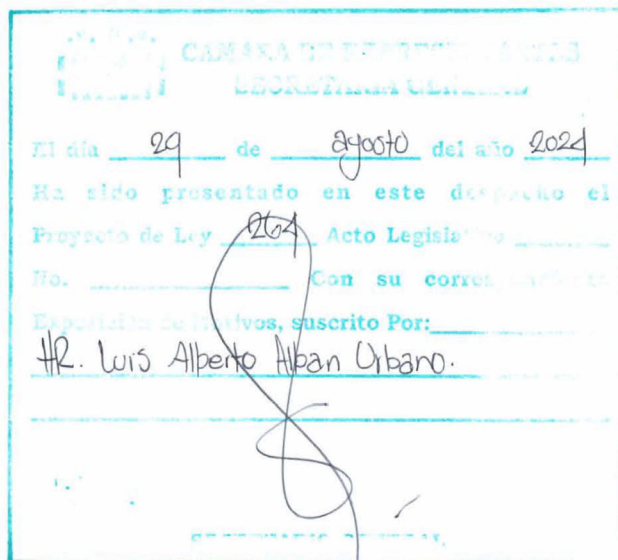 CAMARA DE REPRESENTANTES
SECRETARIA GENERAL
El día 29 de agosto del año 2024
Ha sido presentado en este despacho el
Proyecto de Ley 264 Acto Legislativo
No. Con su correspondiente
Exposición de Motivos, suscrito Por:
HR. Luis Alberto Alban Urbano.
SECRETARIO GENERAL